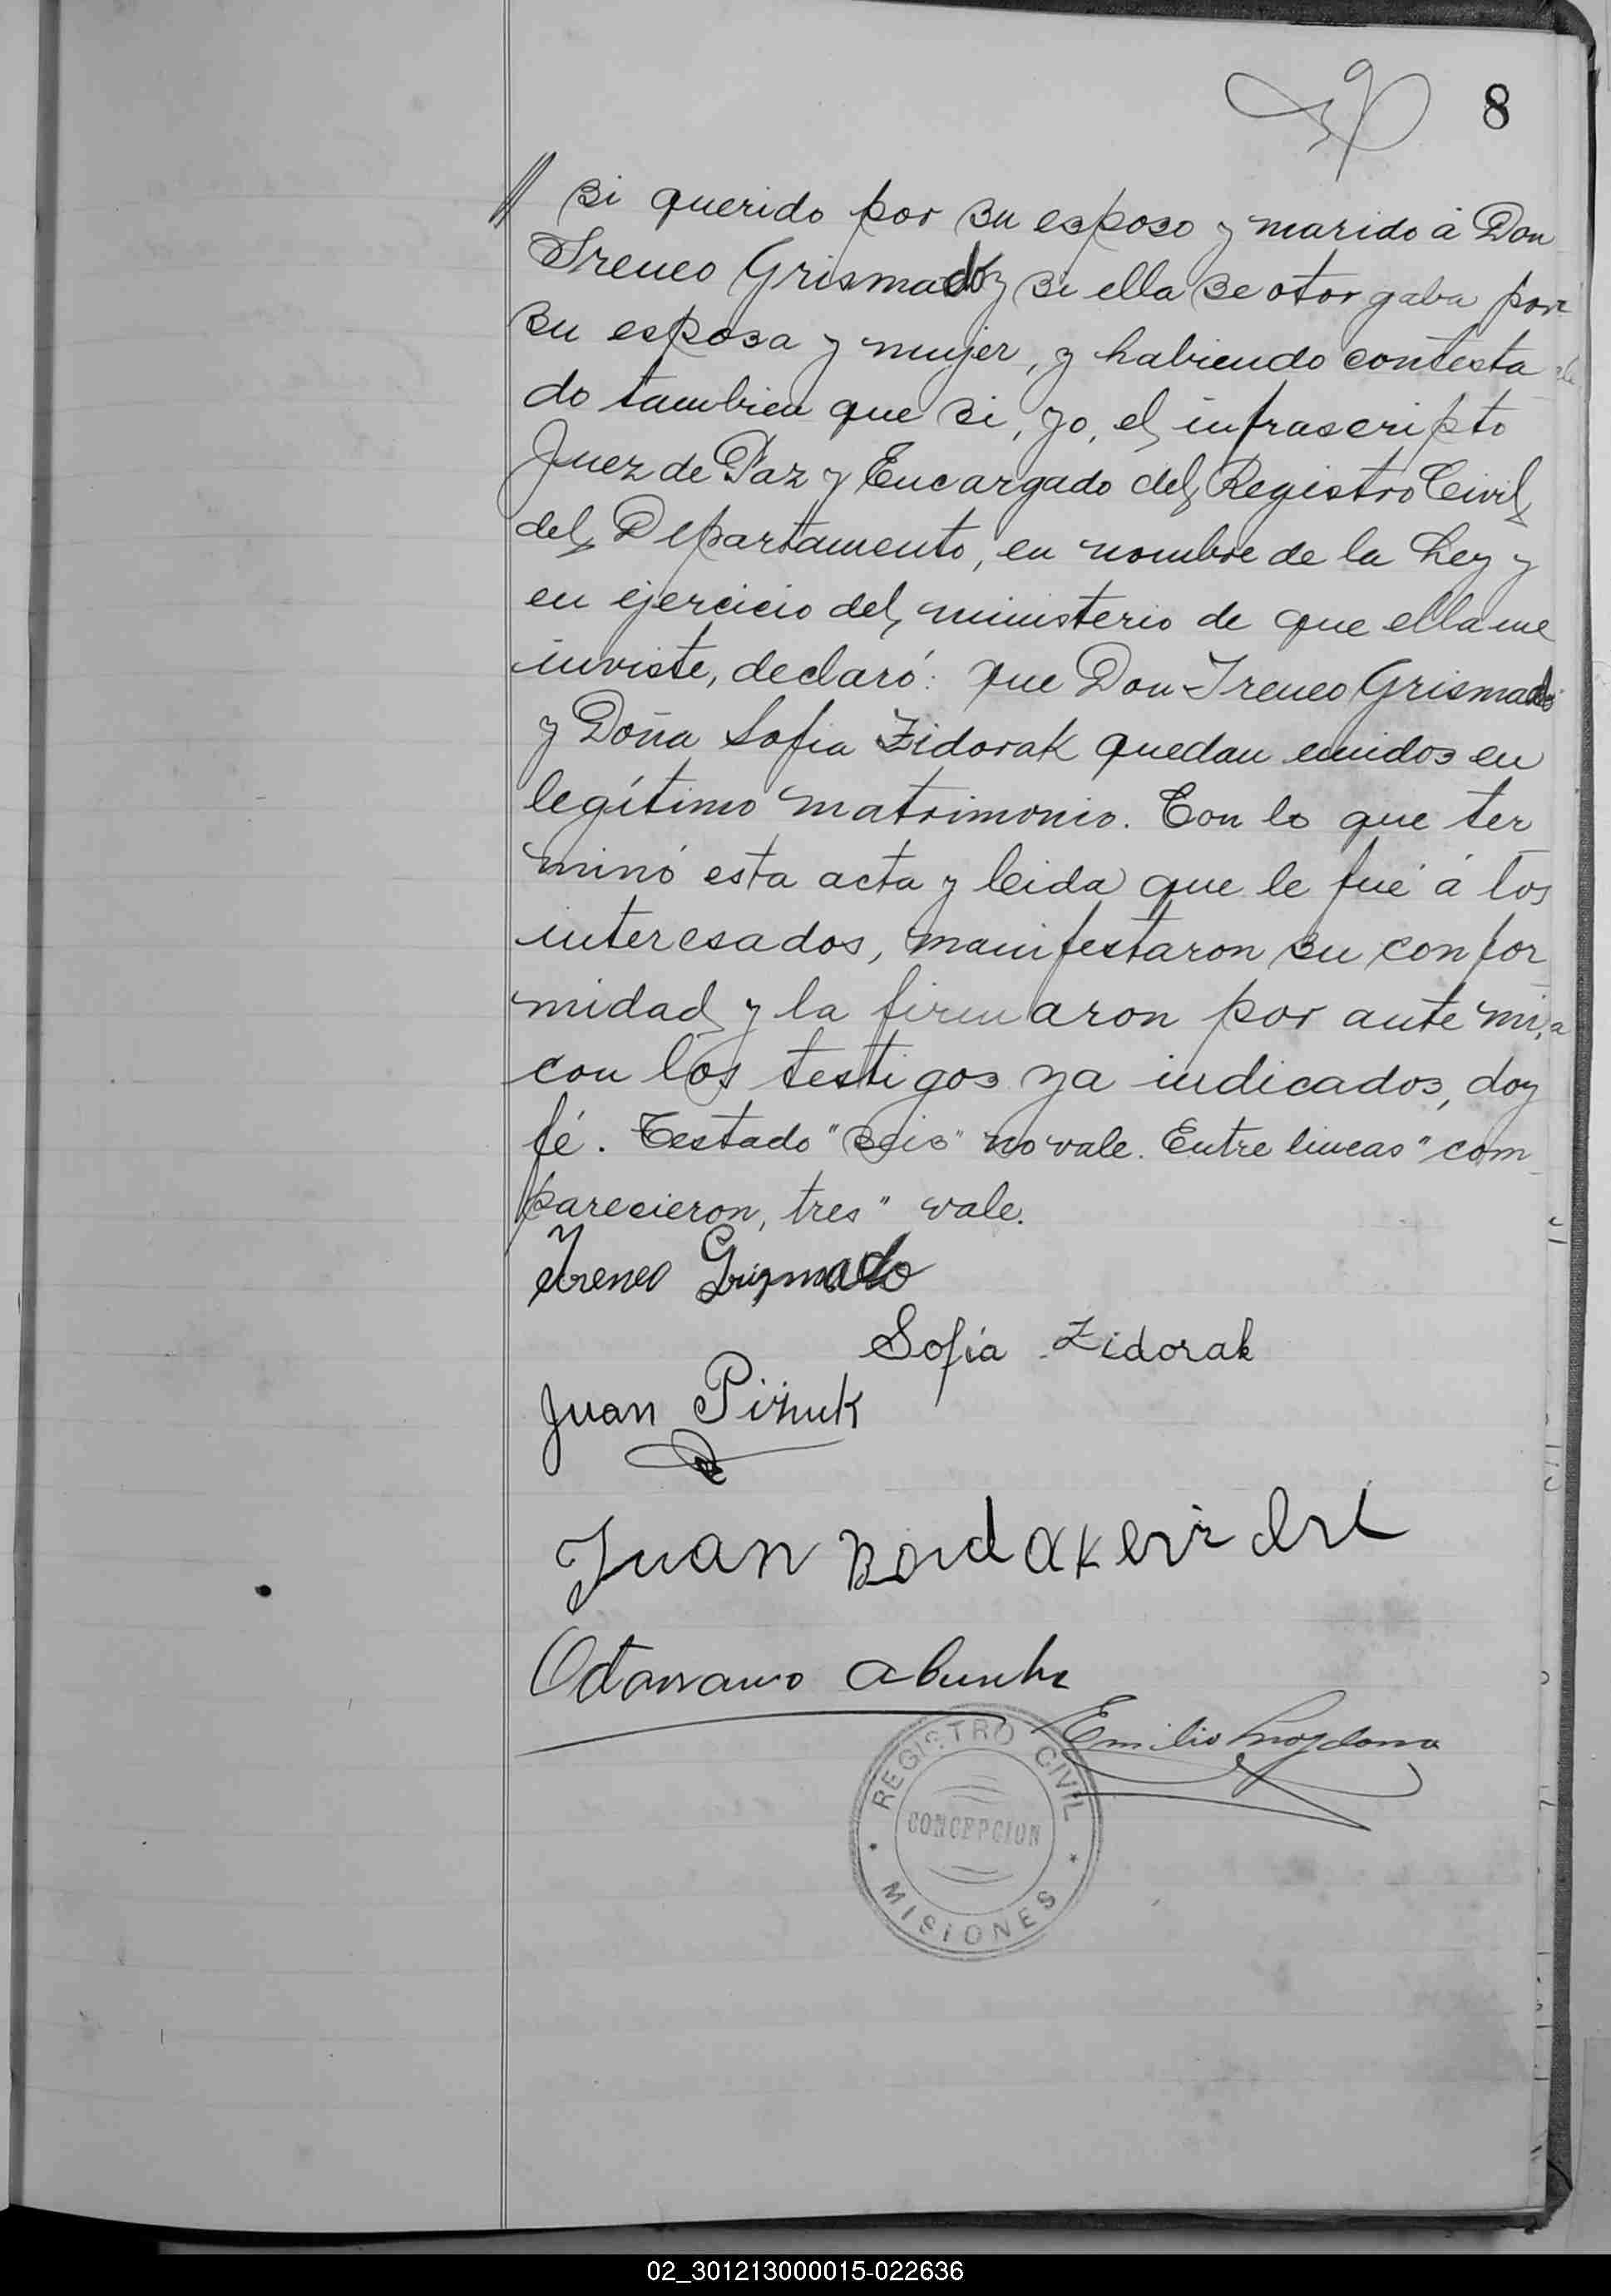 8
// si querido por su esposo y marido á Don
Ireneo Grismado y si ella se otorgaba por
su esposa y mujer, y habiendo contesta
do tambien que si, yo, el infrascripto
Juez de Paz y Encargado del Registro Civil
del Departamento, en nombre de la Ley y
en ejercicio del ministerio de que ella me
inviste, declaró: que Don Ireneo Grismado
y Doña Sofia Zidorak quedan unidos en
legítimo matrimonio. Con lo que ter
minó esta acta y leida que le fué á los
interesados, manifestaron su confor
midad y la firmaron por ante mi,
con los testigos ya indicados, doy
fé. Testado "seis" no vale. Entre lineas "com
parecieron, tres" vale.
Ireneo Grizmado
Sofia Zidorak
Juan Piżuk
Juan
Emilio
REGISTRO CIVIL
CONCEPCION
MISIONES
02_301213000015-022636